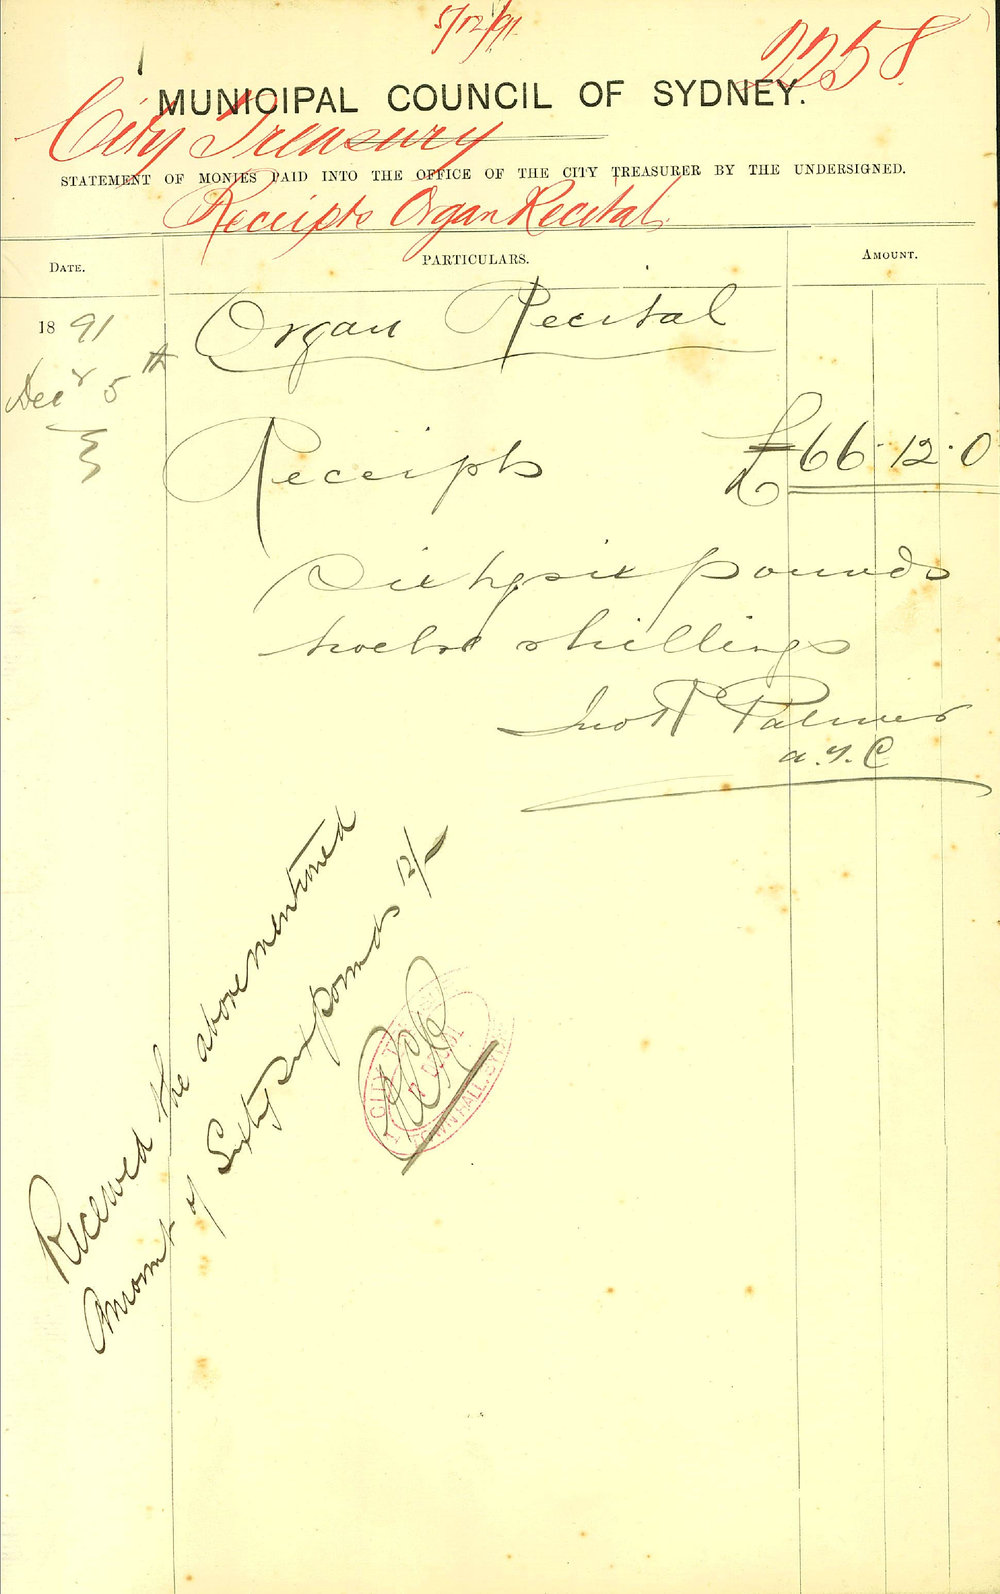 5/12/91
2258
MUNICIPAL COUNCIL OF SYDNEY.
City Treasury
STATEMENT OF MONIES PAID INTO THE OFFICE OF THE CITY TREASURER BY THE UNDERSIGNED.
Receipts Organ Recital
DATE. PARTICULARS. AMOUNT.
1891 Organ Recital
Decr 5th
Receipts £66.12.0
Sixty six pounds
twelve shillings
Jno R Palmer
a.T.C
Received the abovementioned
Amount of Sixty six pounds 12/-
CITY
TOWN HALL, SYDNEY